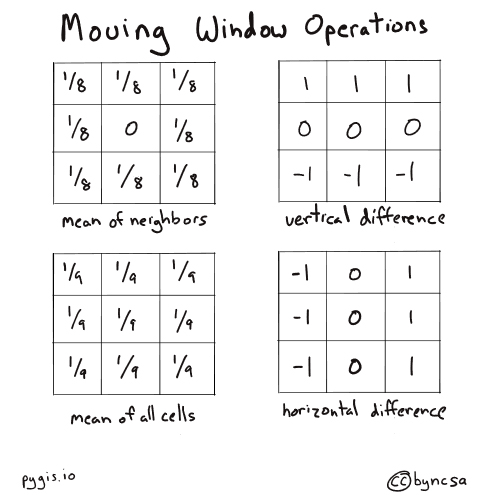 Moving Window Operations
1/8 1/8 1/8
1/8 0 1/8
1/8 1/8 1/8
mean of neighbors
1 1 1
0 0 0
-1 -1 -1
vertical difference
1/9 1/9 1/9
1/9 1/9 1/9
1/9 1/9 1/9
mean of all cells
-1 0 1
-1 0 1
-1 0 1
horizontal difference
pygis.io
cc byncsa